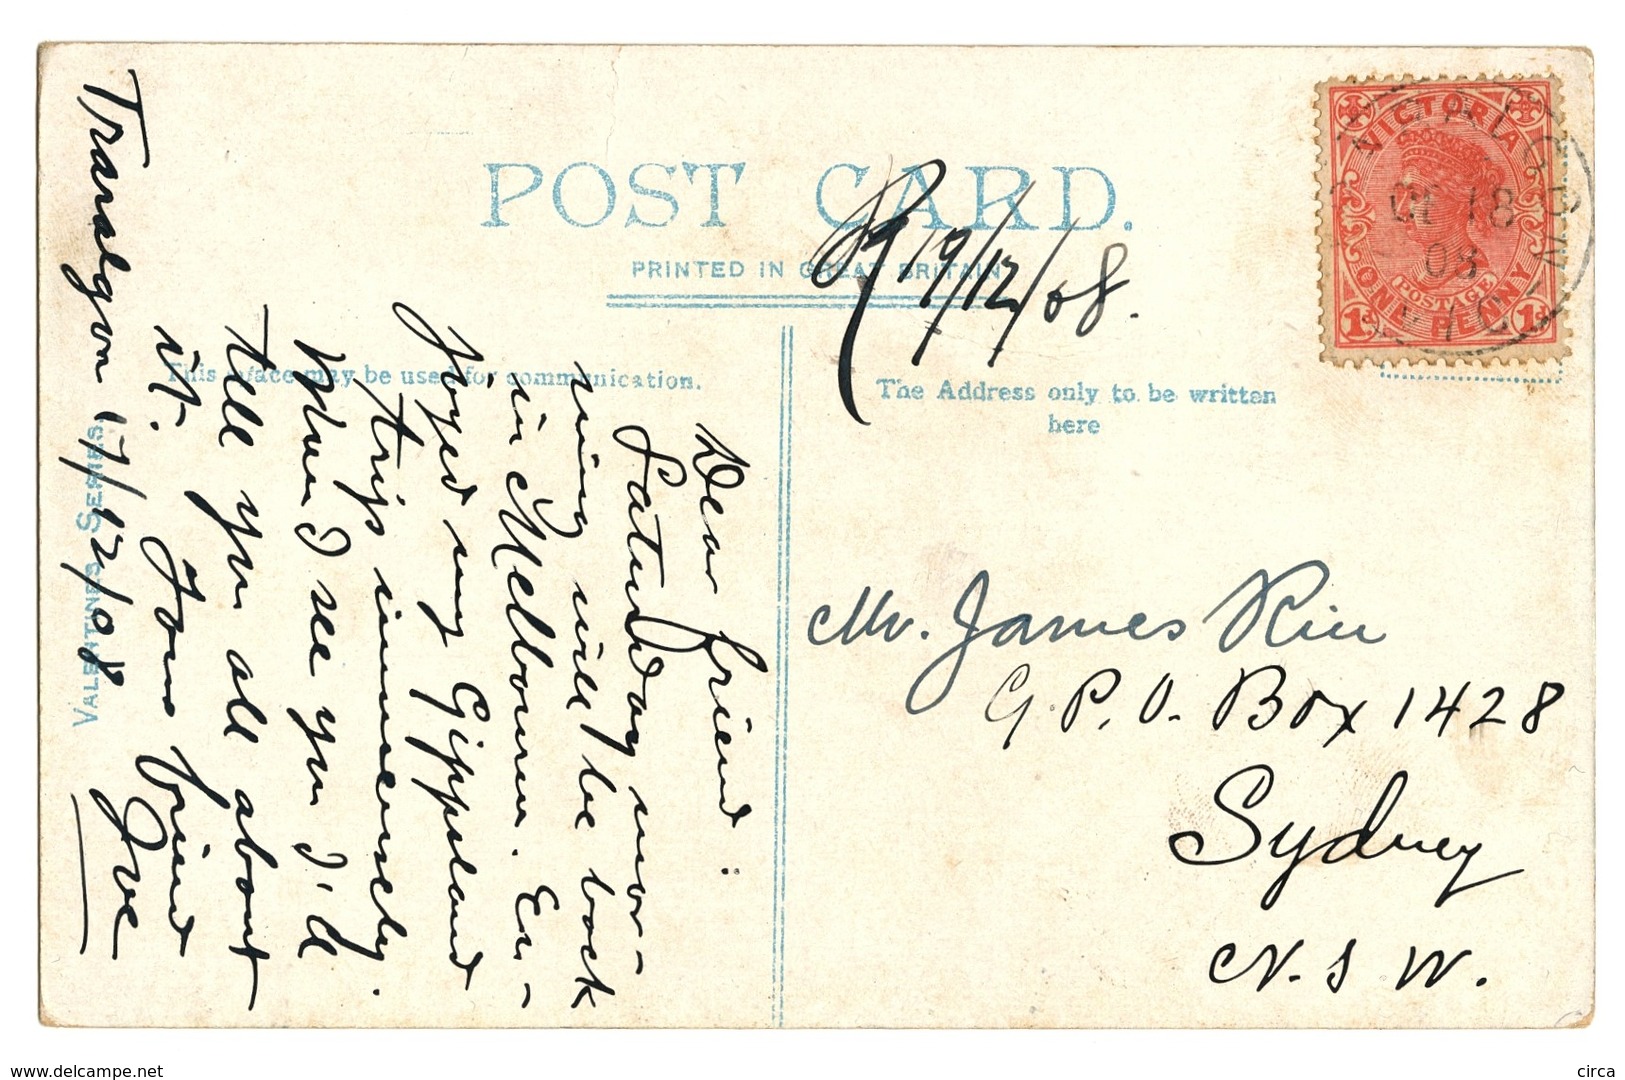 POST CARD.
PRINTED IN GREAT BRITAIN
R 19/12/08.
This space may be used for communication.
The Address only to be written
here
VALENTINES SERIES
VICTORIA
POSTAGE
ONE PENNY
1d 1d
TRARALGON
DE 18
08
VIC
Traralgon 17/12/08
Dear friend:
Saturday mor-
ning will be back
in Melbourne. En-
joyed my Gippsland
trip immensely.
When I see you I'll
tell you all about
it. Your friend
Joe
Mr. James Rice
G.P.O. Box 1428
Sydney
N.S.W.
www.delcampe.net
circa